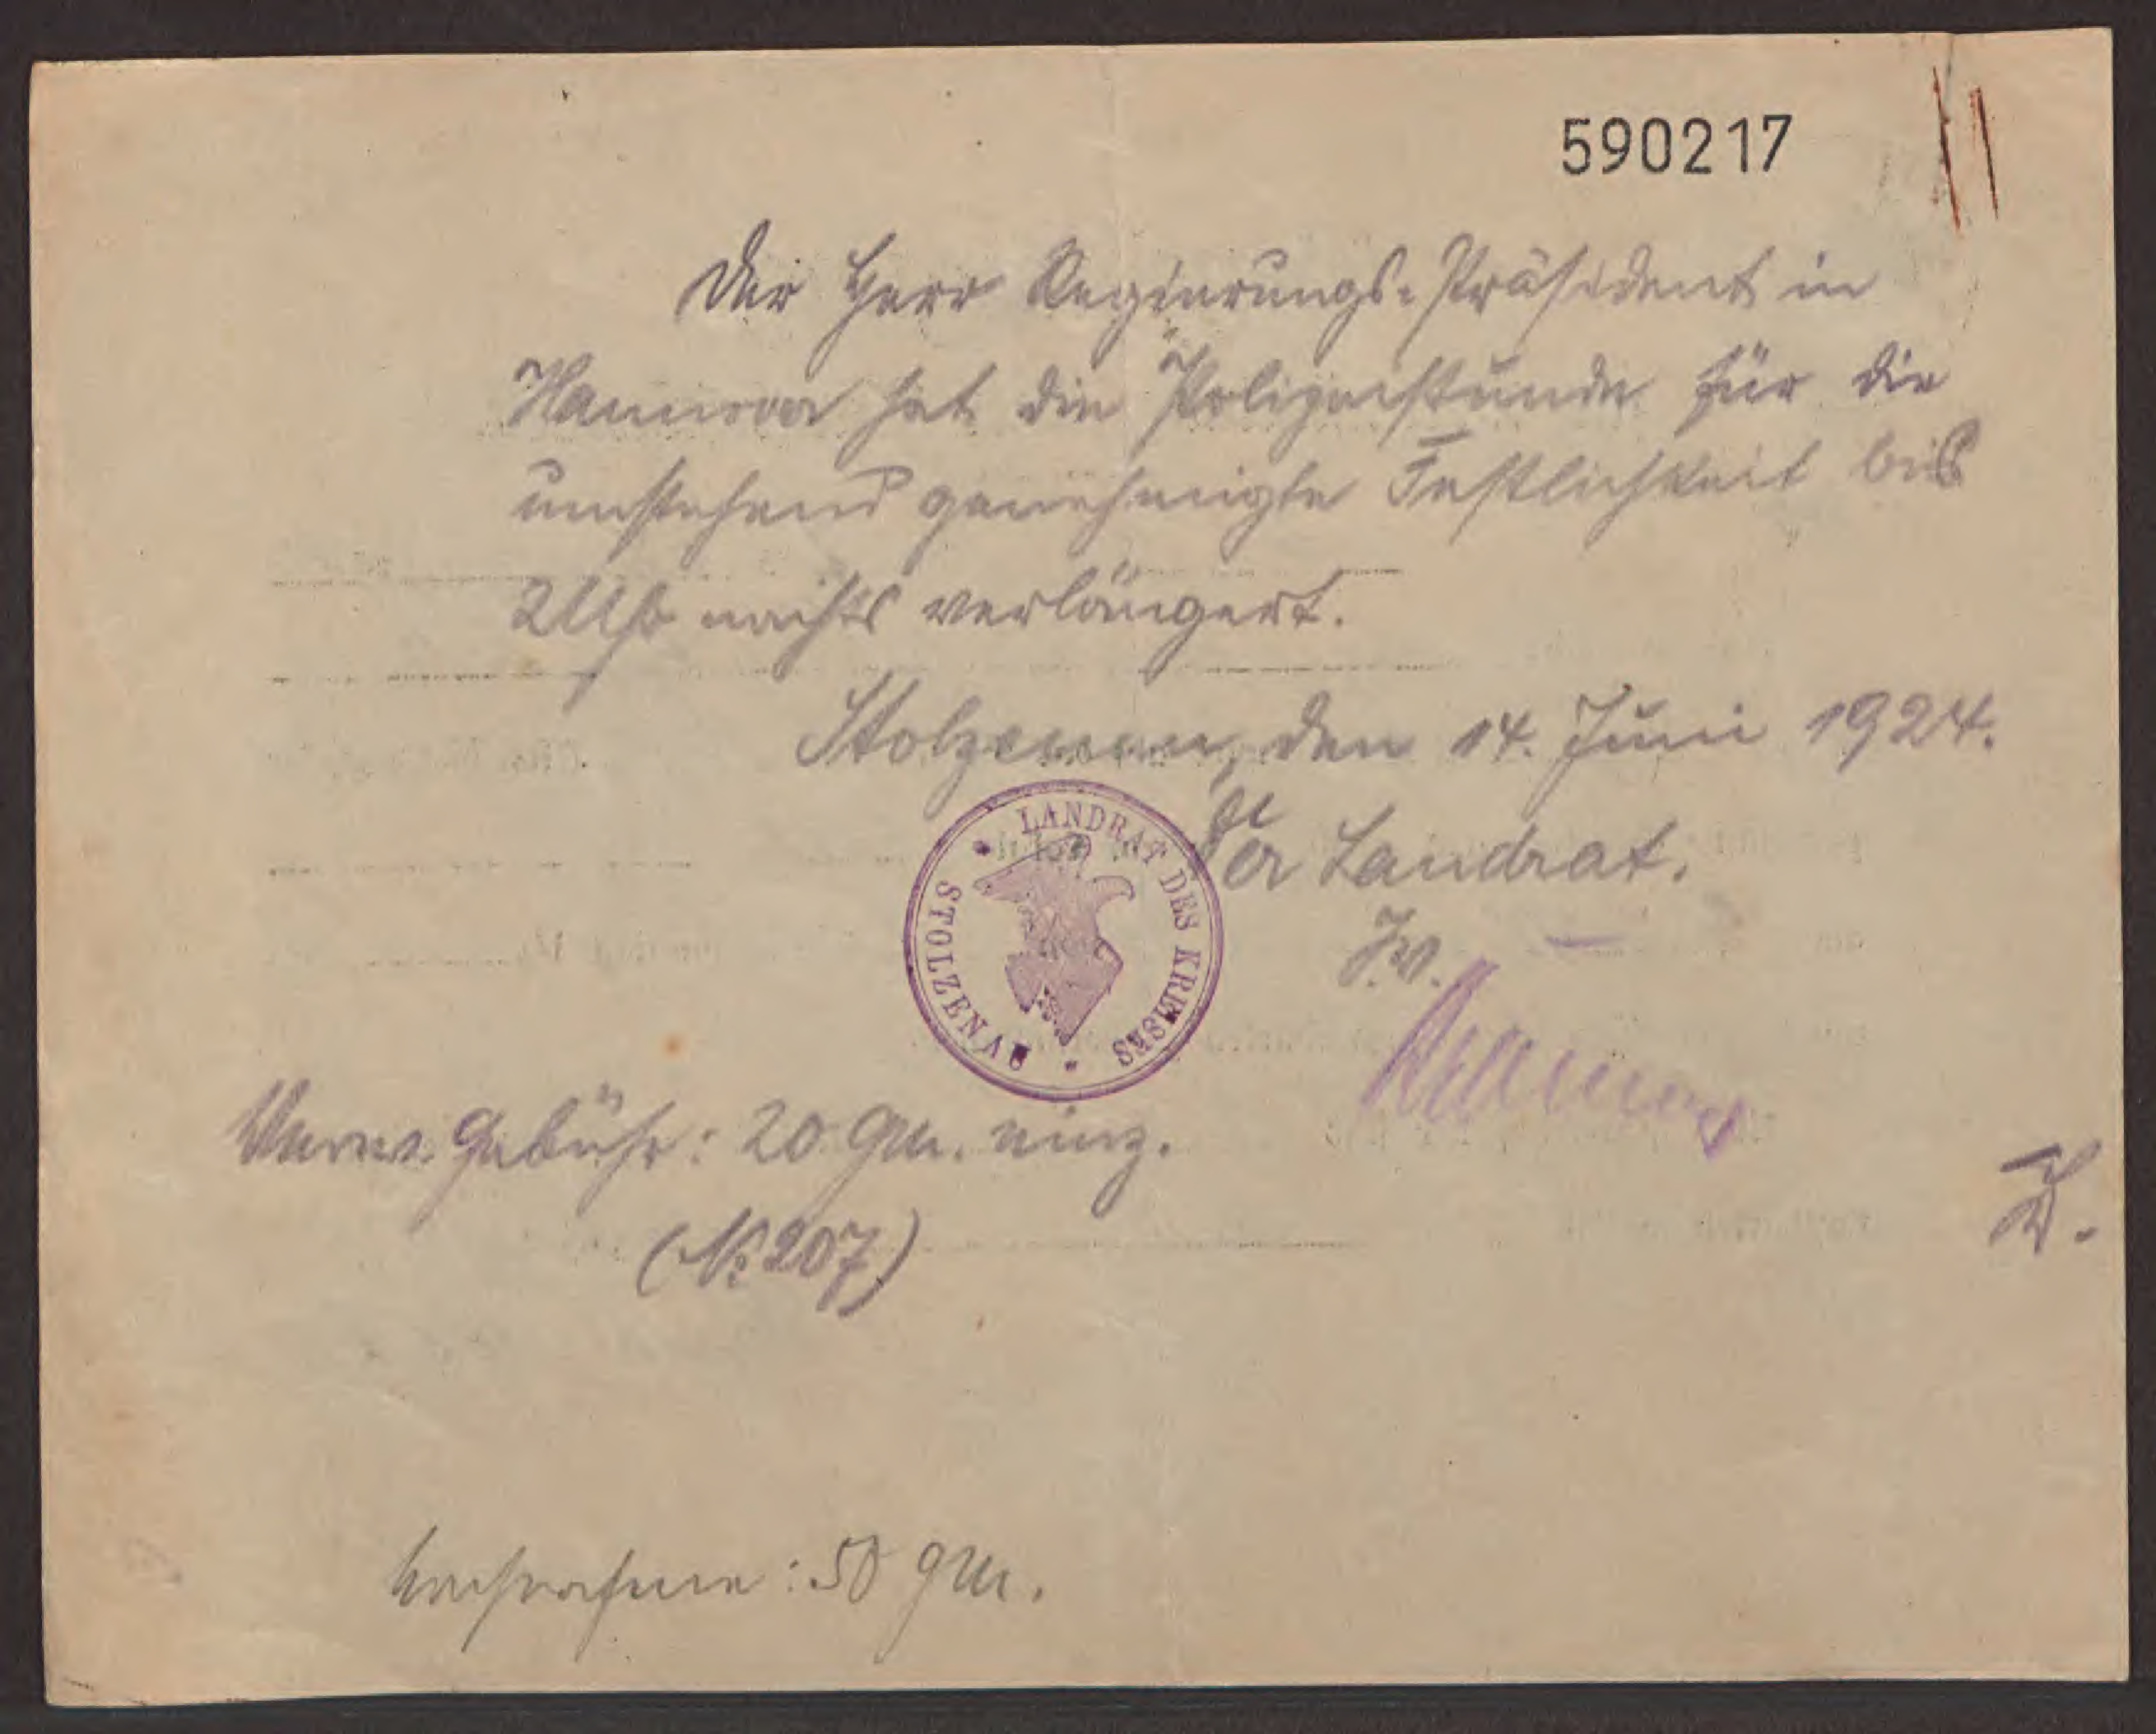 590217
Der Herr Regierungs-Präsident in
Hannover hat die Polizeistunde für die
umstehend genehmigte Festlichkeit bis
2 Uhr nachts verlängert.
Stolzenau, den 14. Juni 1924.
Der Landrat.
J.V.
LANDRAT DES KREISES STOLZENAU
Verw. Gebühr: 20 GM. einz.
(№ 207)
Nachnahme: 50 GM.